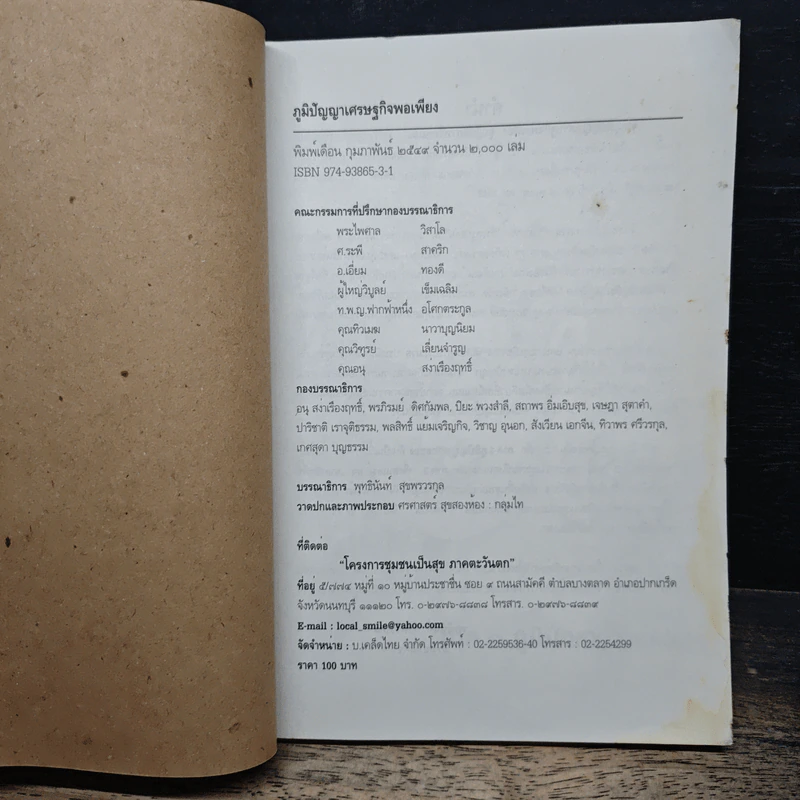 ภูมิปัญญาเศรษฐกิจพอเพียง
พิมพ์เดือน กุมภาพันธ์ ๒๕๔๙ จำนวน ๒,๐๐๐ เล่ม
ISBN 974-93865-3-1
คณะกรรมการที่ปรึกษากองบรรณาธิการ
พระไพศาล วิสาโล
ศ.ระพี สาคริก
อ.เอี่ยม ทองดี
ผู้ใหญ่วิบูลย์ เข็มเฉลิม
ท.พ.ญ.ฟากฟ้าหนึ่ง อโศกตระกูล
คุณทิวเมฆ นาวาบุญนิยม
คุณวิฑูรย์ เลี่ยนจำรูญ
คุณอนุ สง่าเรืองฤทธิ์
กองบรรณาธิการ
อนุ สง่าเรืองฤทธิ์, พรภิรมย์ ดิศกัมพล, ปิยะ พวงสำลี, สถาพร อิ่มเอิบสุข, เจษฎา สุตาคำ,
ปาริชาติ เราจุติธรรม, พลสิทธิ์ แย้มเจริญกิจ, วิชาญ อุ่นอก, สังเวียน เอกจีน, ทิวาพร ศรีวรกุล,
เกศสุดา บุญธรรม
บรรณาธิการ พุทธินันท์ สุขพรวรกุล
วาดปกและภาพประกอบ ศรศาสตร์ สุขสองห้อง : กลุ่มไท
ที่ติดต่อ
"โครงการชุมชนเป็นสุข ภาคตะวันตก"
ที่อยู่ ๕/๗๗๔ หมู่ที่ ๑๐ หมู่บ้านประชาชื่น ซอย ๙ ถนนสามัคคี ตำบลบางตลาด อำเภอปากเกร็ด
จังหวัดนนทบุรี ๑๑๑๒๐ โทร. ๐-๒๙๗๖-๘๘๓๘ โทรสาร. ๐-๒๙๗๖-๘๘๓๙
E-mail : local_smile@yahoo.com
จัดจำหน่าย : บ.เคล็ดไทย จำกัด โทรศัพท์ : 02-2259536-40 โทรสาร : 02-2254299
ราคา 100 บาท